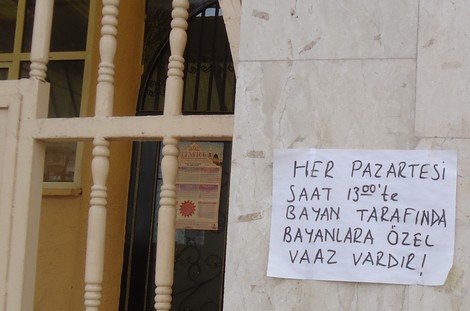 HER PAZARTESİ
SAAT 13⁰⁰'te
BAYAN TARAFINDA
BAYANLARA ÖZEL
VAAZ VARDIR!